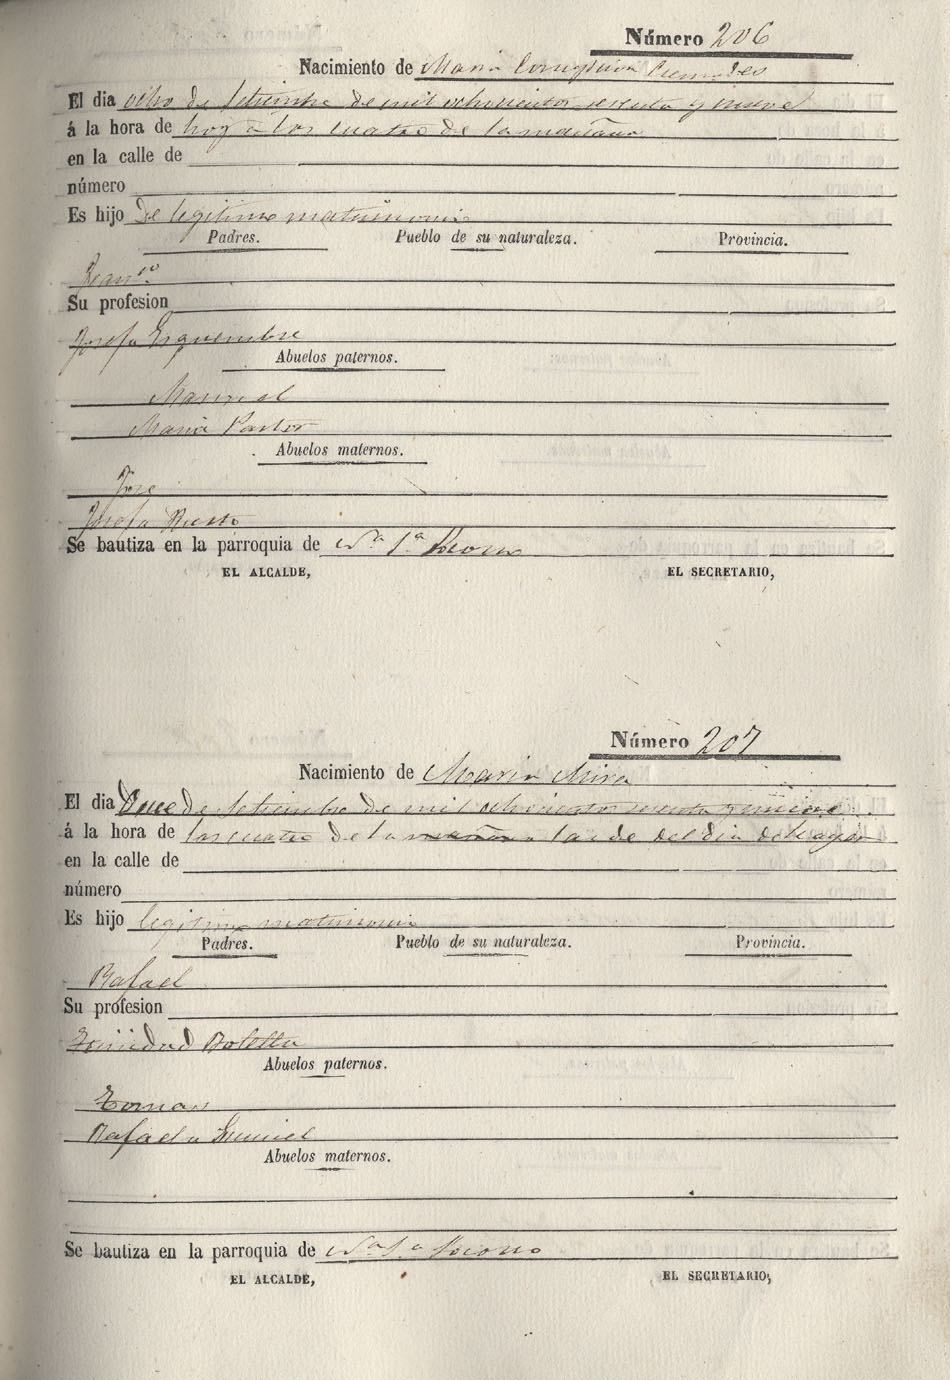 Número 206
Nacimiento de Maria Concepcion
El dia ocho de Setiembre de mil ochocientos sesenta y nueve
á la hora de hoy a las cuatro de la mañana
en la calle de
número
Es hijo de legitimo matrimonio
Padres. Pueblo de su naturaleza. Provincia.
Franco
Su profesion
Josefa Esquembre
Abuelos paternos.
Manuel
Maria Pastor
Abuelos maternos.
Jose
Josefa
Se bautiza en la parroquia de Na. Sa. Socorro
EL ALCALDE, EL SECRETARIO,
Número 207
Nacimiento de Maria Mira
El dia Doce de Setiembre de mil ochocientos sesenta y nueve.
á la hora de las cuatro de la mañana tarde del dia de ayer
en la calle de
número
Es hijo legitimo matrimonio
Padres. Pueblo de su naturaleza. Provincia.
Rafael
Su profesion
Trinidad Botella
Abuelos paternos.
Tomas
Rafaela
Abuelos maternos.
Se bautiza en la parroquia de Na. Sa. Socorro
EL ALCALDE, EL SECRETARIO,